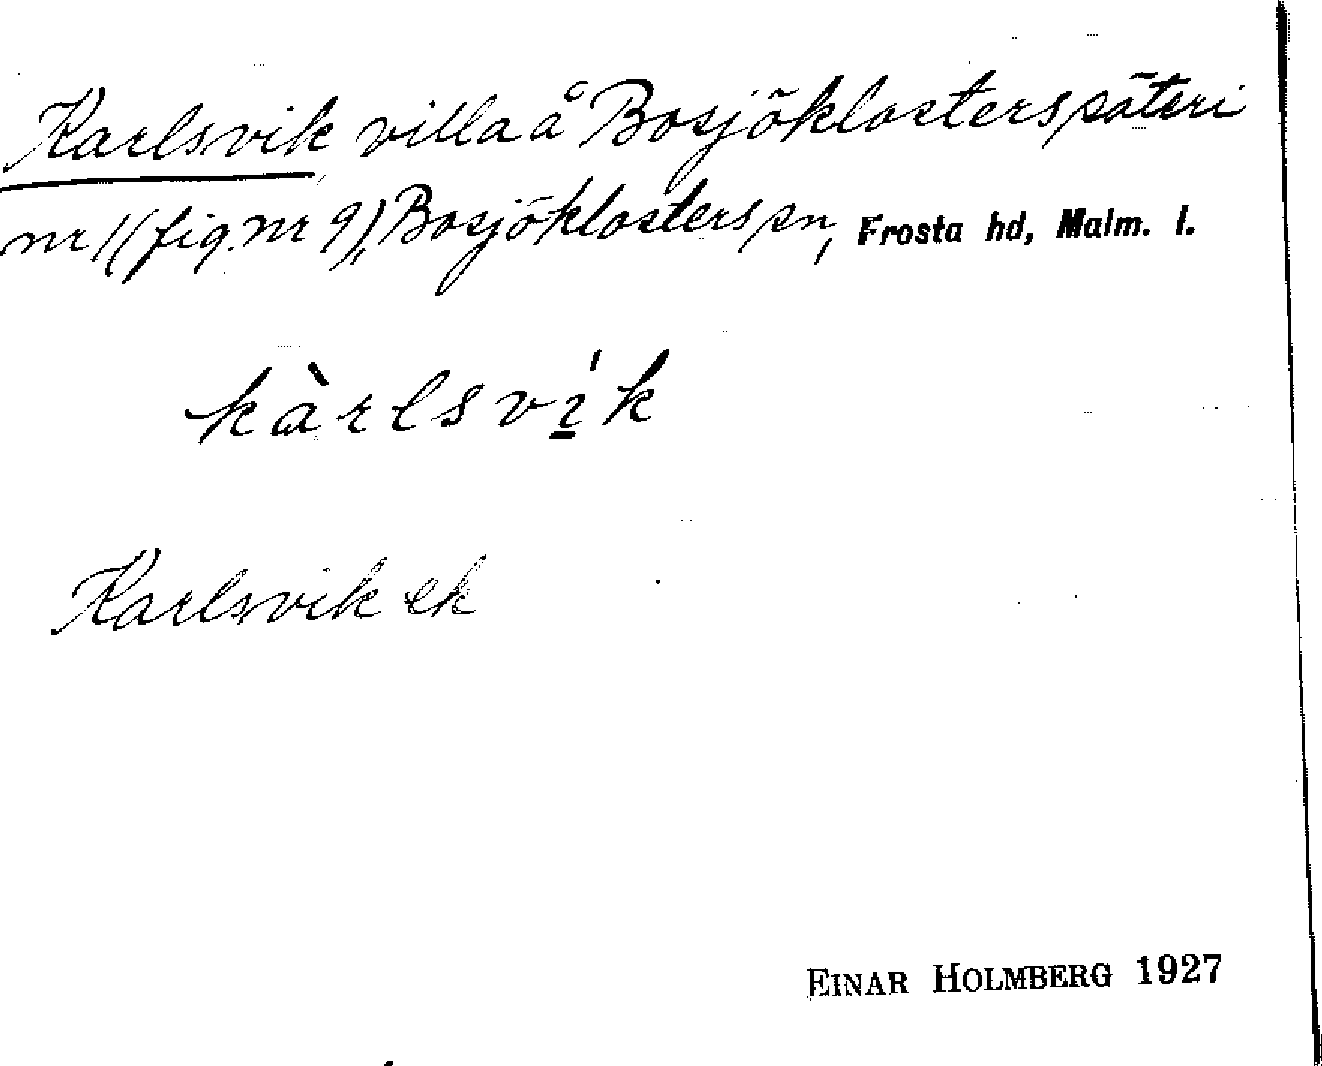 Karlsvik, villa å Bosjöklosters säteri
nr 1 (fig. nr 9), Bosjöklosters sn, Frosta hd, Malm. l.
kàrlsví̲k
Karlsvik ek
EINAR HOLMBERG 1927